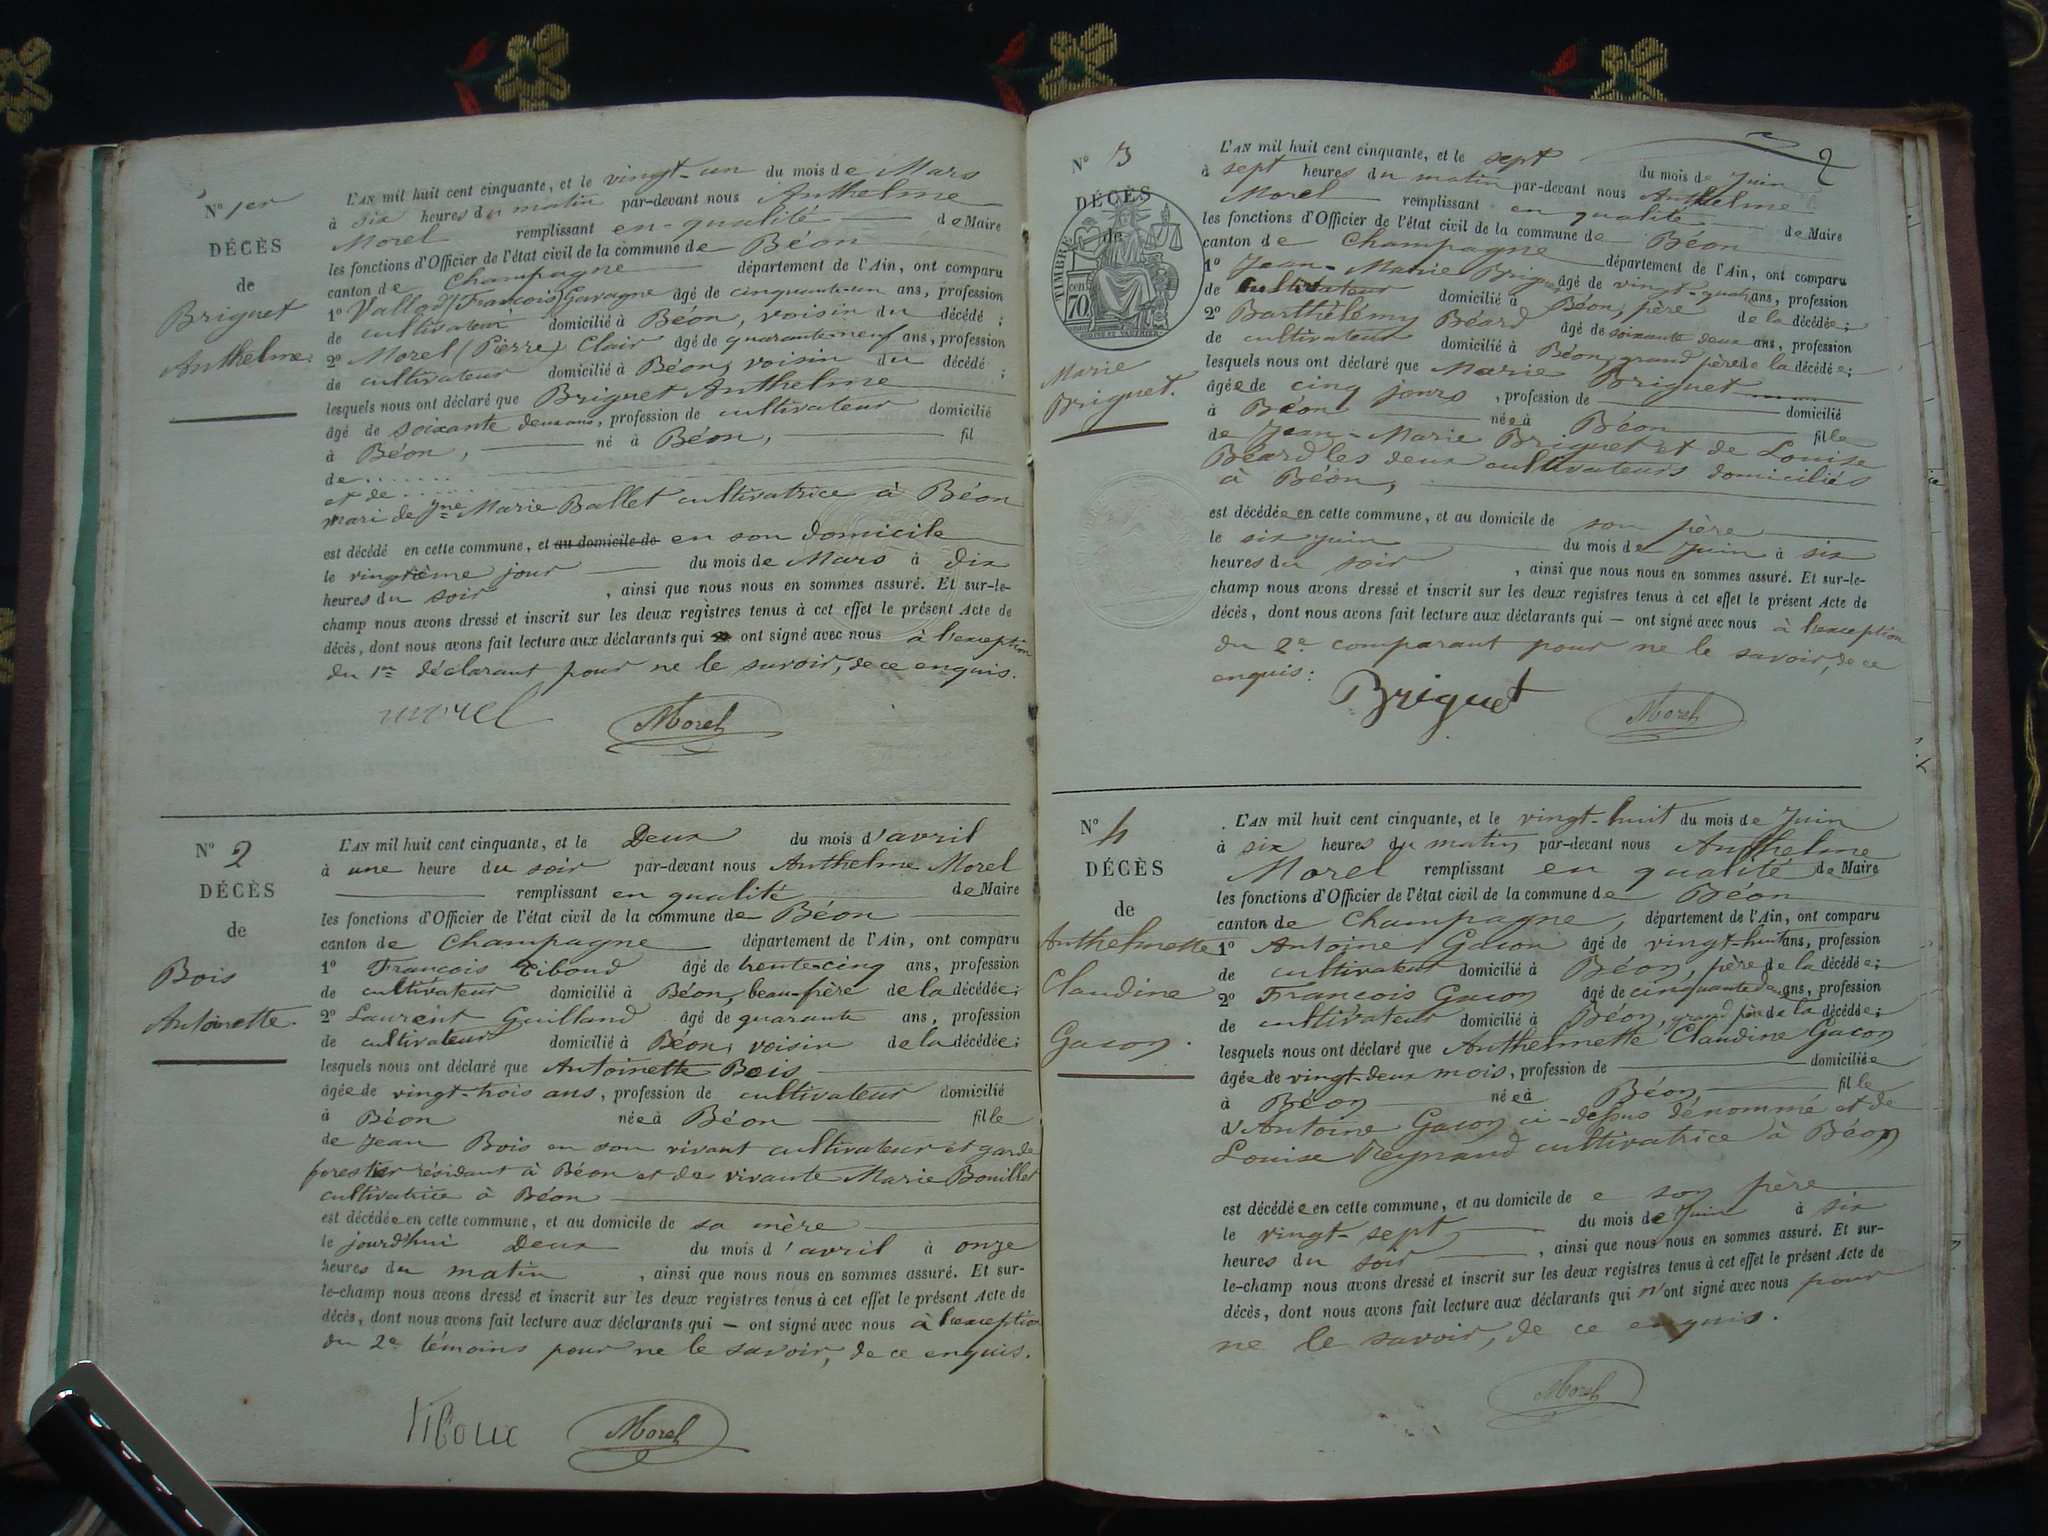 N° 1er
DÉCÈS
de
Briguet
Anthelme.
L'AN mil huit cent cinquante, et le vingt-un du mois de Mars
à six heures du matin par-devant nous Anthelme
Morel remplissant en qualité de Maire
les fonctions d'Officier de l'état civil de la commune de Béon
canton de Champagne département de l'Ain, ont comparu
1° Vallod (François) Gavagne âgé de cinquante-un ans, profession
de cultivateur domicilié à Béon, voisin du décédé ;
2° Morel (Pierre) Clair âgé de quarante-neuf ans, profession
de cultivateur domicilié à Béon, voisin du décédé ;
lesquels nous ont déclaré que Briguet Anthelme
âgé de soixante deux ans, profession de cultivateur domicilié
à Béon, né à Béon, fil
de ......
et de ......
mari de Jne Marie Ballet cultivatrice à Béon
est décédé en cette commune, et au domicile de en son domicile
le vingtième jour du mois de Mars à dix
heures du soir , ainsi que nous nous en sommes assuré. Et sur-le-
champ nous avons dressé et inscrit sur les deux registres tenus à cet effet le présent Acte de
décès, dont nous avons fait lecture aux déclarants qui ont signé avec nous à l'exception
du 1er déclarant pour ne le savoir, de ce enquis.
morel Morel
N° 2
DÉCÈS
de
Bois
Antoinette.
L'AN mil huit cent cinquante, et le Deux du mois d'avril
à une heure du soir par-devant nous Anthelme Morel
remplissant en qualité de Maire
les fonctions d'Officier de l'état civil de la commune de Béon
canton de Champagne département de l'Ain, ont comparu
1° François Tiboud âgé de trente-cinq ans, profession
de cultivateur domicilié à Béon, beau-frère de la décédée ;
2° Laurent Guilland âgé de quarante ans, profession
de cultivateur domicilié à Béon, voisin de la décédée ;
lesquels nous ont déclaré que Antoinette Bois
âgée de vingt-trois ans, profession de cultivateur domicilié
à Béon née à Béon fille
de Jean Bois en son vivant cultivateur et garde
forestier résidant à Béon et de vivante Marie Bouillet
cultivatrice à Béon
est décédée en cette commune, et au domicile de sa mère
le jourd'hui Deux du mois d'avril à onze
heures du matin , ainsi que nous nous en sommes assuré. Et sur-
le-champ nous avons dressé et inscrit sur les deux registres tenus à cet effet le présent Acte de
décès, dont nous avons fait lecture aux déclarants qui — ont signé avec nous à l'exception
du 2e témoins pour ne le savoir, de ce enquis.
Tiboux Morel
2
N° 3
DÉCÈS
de
TIMBRE
70
Marie
Briguet.
L'AN mil huit cent cinquante, et le sept du mois de Juin
à sept heures du matin par-devant nous Anthelme
Morel remplissant en qualité de Maire
les fonctions d'Officier de l'état civil de la commune de Béon
canton de Champagne département de l'Ain, ont comparu
1° Jean-Marie Briguet âgé de vingt-quatre ans, profession
de cultivateur domicilié à Béon, père de la décédée ;
2° Barthélémy Béard âgé de soixante deux ans, profession
de cultivateur domicilié à Béon, grand père de la décédée ;
lesquels nous ont déclaré que Marie Briguet
âgée de cinq jours , profession de domicilié
à Béon née à Béon fille
de Jean-Marie Briguet et de Louise
Béard les deux cultivateurs domiciliés
à Béon,
est décédée en cette commune, et au domicile de son père
le six juin du mois de Juin à six
heures du soir , ainsi que nous nous en sommes assuré. Et sur-le-
champ nous avons dressé et inscrit sur les deux registres tenus à cet effet le présent Acte de
décès, dont nous avons fait lecture aux déclarants qui — ont signé avec nous à l'exception
du 2e comparant pour ne le savoir, de ce
enquis :
Briguet Morel
N° 4
DÉCÈS
de
Anthelmette
Claudine
Gacon.
L'AN mil huit cent cinquante, et le vingt-huit du mois de Juin
à six heures du matin par-devant nous Anthelme
Morel remplissant en qualité de Maire
les fonctions d'Officier de l'état civil de la commune de Béon
canton de Champagne, département de l'Ain, ont comparu
1° Antoine Gacon âgé de vingt-huit ans, profession
de cultivateur domicilié à Béon, père de la décédée ;
2° François Gacon âgé de cinquante deux ans, profession
de cultivateur domicilié à Béon, grand père de la décédée ;
lesquels nous ont déclaré que Anthelmette Claudine Gacon
âgée de vingt-deux mois, profession de domiciliée
à Béon née à Béon fille
d'Antoine Gacon ci-dessus dénommé et de
Louise Reynaud cultivatrice à Béon
est décédée en cette commune, et au domicile de e son père
le vingt-sept du mois de Juin à six
heures du soir , ainsi que nous nous en sommes assuré. Et sur-
le-champ nous avons dressé et inscrit sur les deux registres tenus à cet effet le présent Acte de
décès, dont nous avons fait lecture aux déclarants qui n'ont signé avec nous pour
ne le savoir, de ce enquis.
Morel